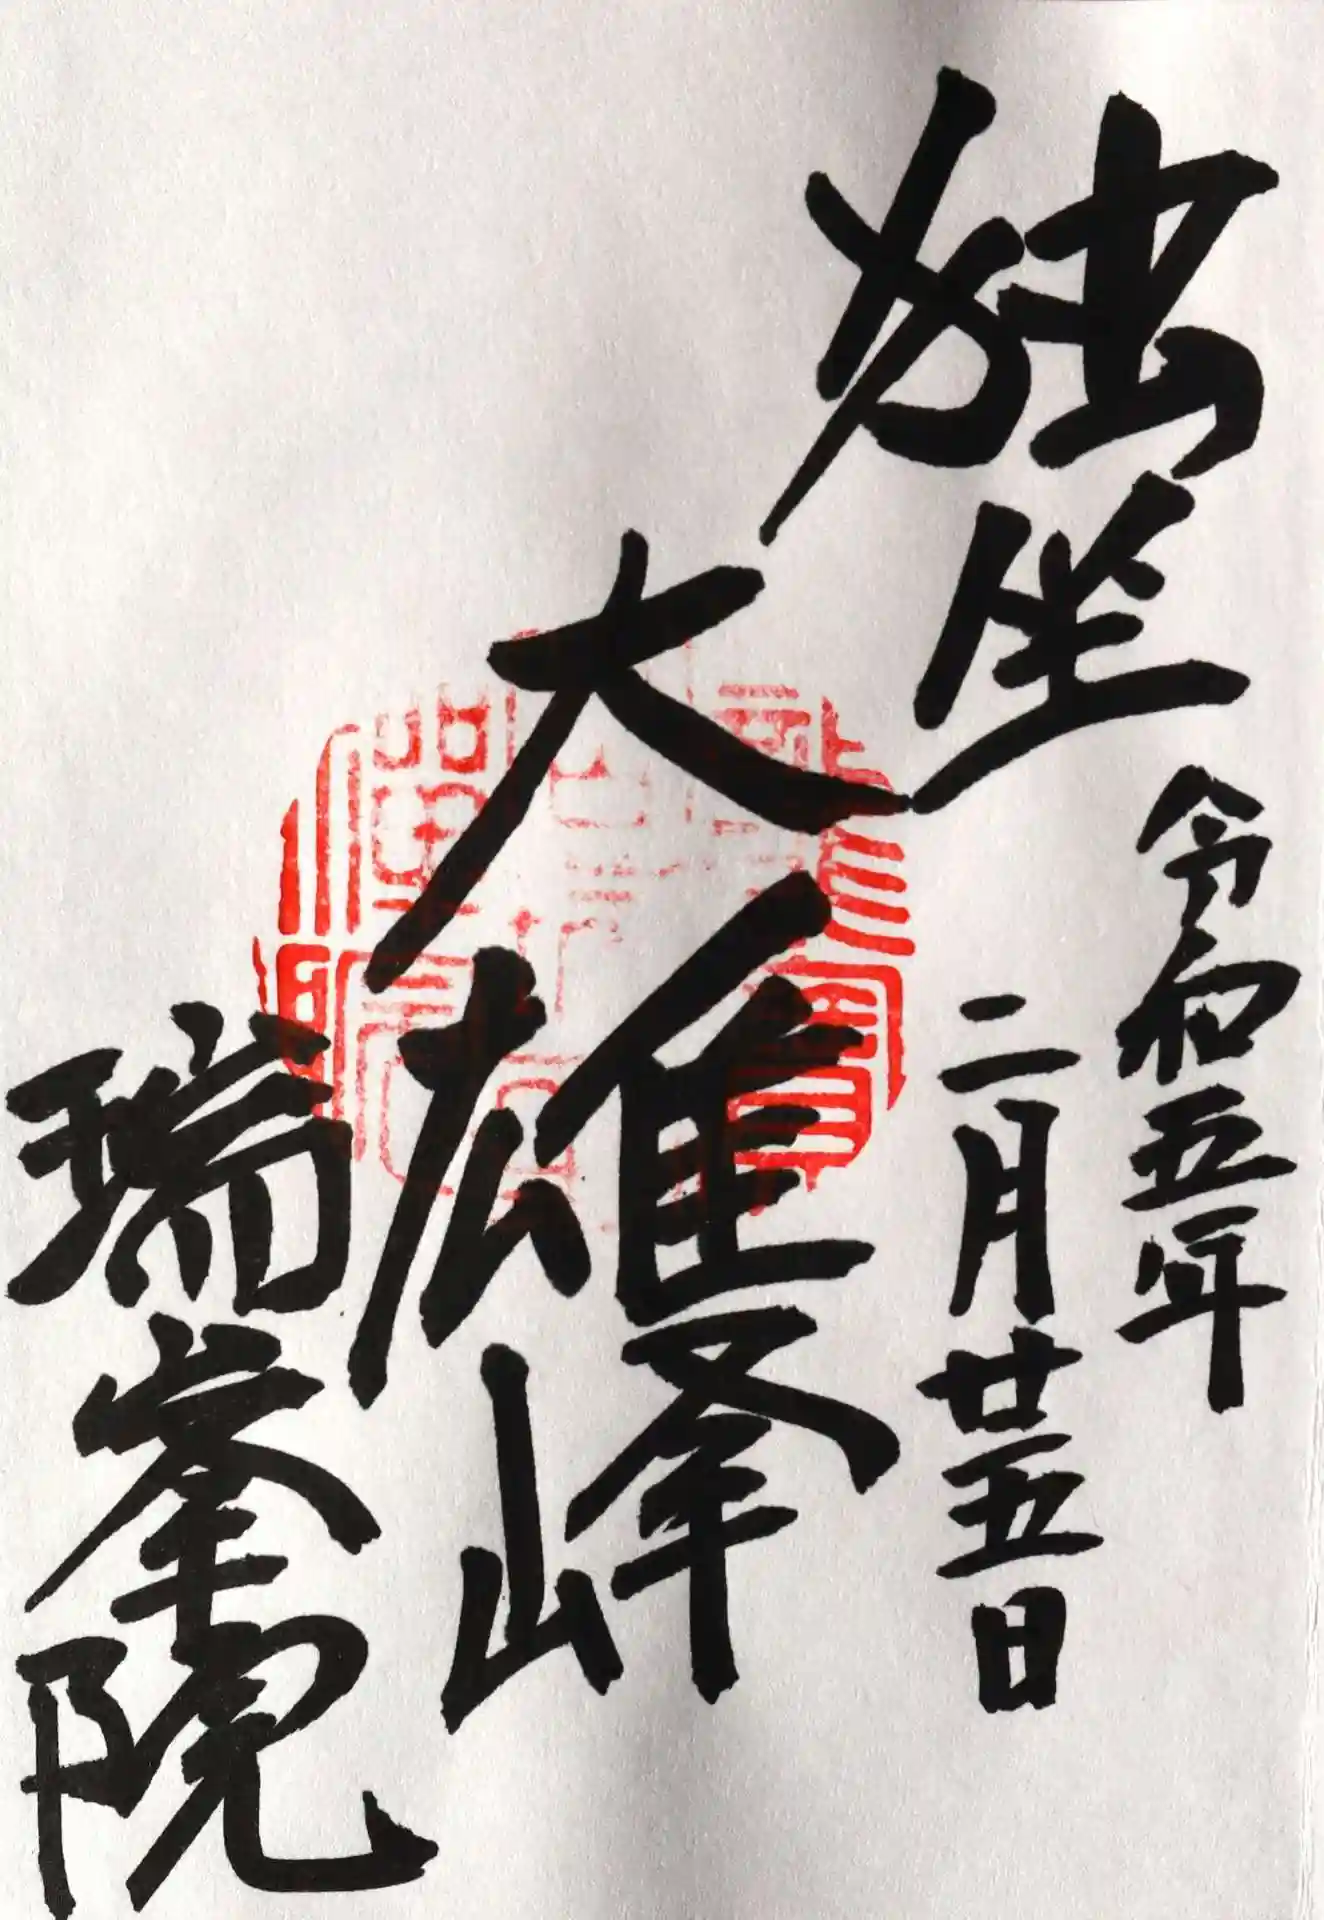 独坐
大雄峰
令和五年
二月廿五日
瑞峯院